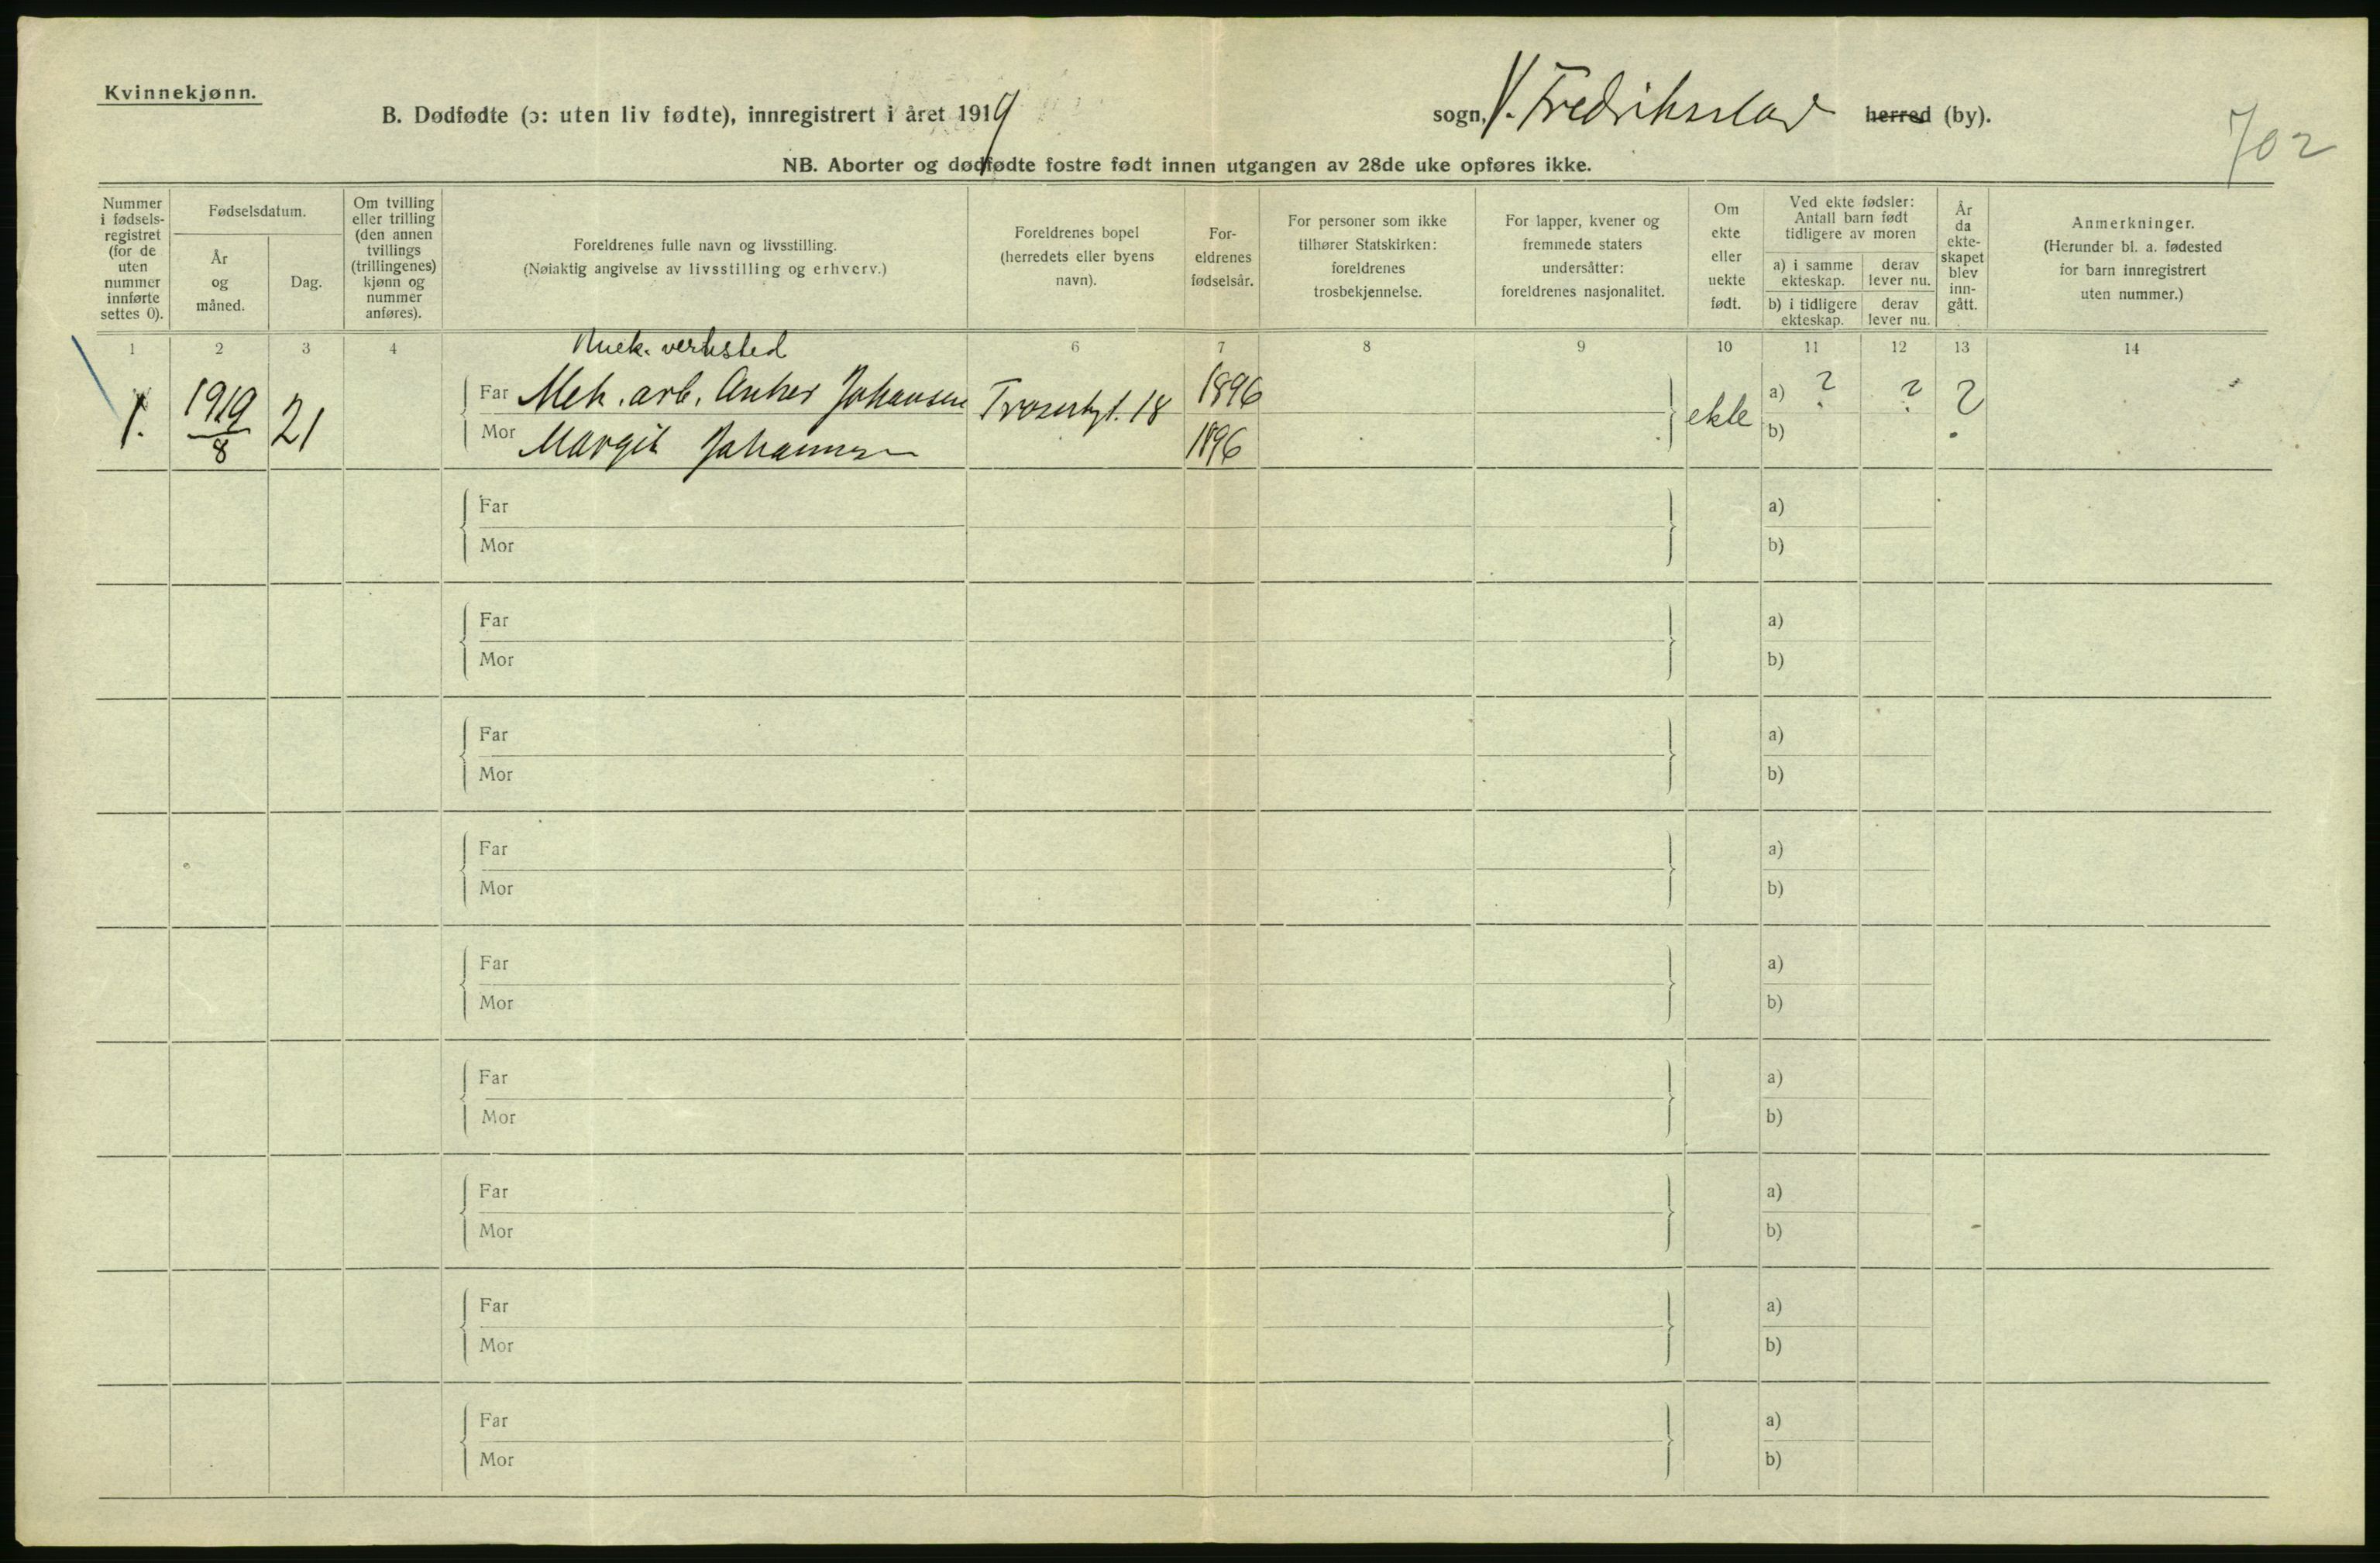 Kvinnekjønn.
B. Dødfødte (ɔ: uten liv fødte), innregistrert i året 1919
sogn, V. Fredriksstad herred (by).
702
NB. Aborter og dødfødte fostre født innen utgangen av 28de uke opføres ikke.
Nummer i fødsels-registret (for de uten nummer innførte settes 0).
Fødselsdatum.
År og måned.
Dag.
Om tvilling eller trilling (den annen tvillings (trillingenes) kjønn og nummer anføres).
Foreldrenes fulle navn og livsstilling.
(Nøiaktig angivelse av livsstilling og erhverv.)
Foreldrenes bopel (herredets eller byens navn).
For-eldrenes fødselsår.
For personer som ikke tilhører Statskirken: foreldrenes trosbekjennelse.
For lapper, kvener og fremmede staters undersåtter: foreldrenes nasjonalitet.
Om ekte eller uekte født.
Ved ekte fødsler: Antall barn født tidligere av moren
a) i samme ekteskap.
derav lever nu.
b) i tidligere ekteskap.
derav lever nu.
År da ekte-skapet blev inn-gått.
Anmerkninger.
(Herunder bl. a. fødested for barn innregistrert uten nummer.)
1 2 3 4 6 7 8 9 10 11 12 13 14
mek. verksted
1. 1919/8 21
Far Mek. arb. Anker Johansen
Mor Margit Johannesen
18
1896
1896
ekte
a) ? ? ?
b)
Far a)
Mor b)
Far a)
Mor b)
Far a)
Mor b)
Far a)
Mor b)
Far a)
Mor b)
Far a)
Mor b)
Far a)
Mor b)
Far a)
Mor b)
Far a)
Mor b)